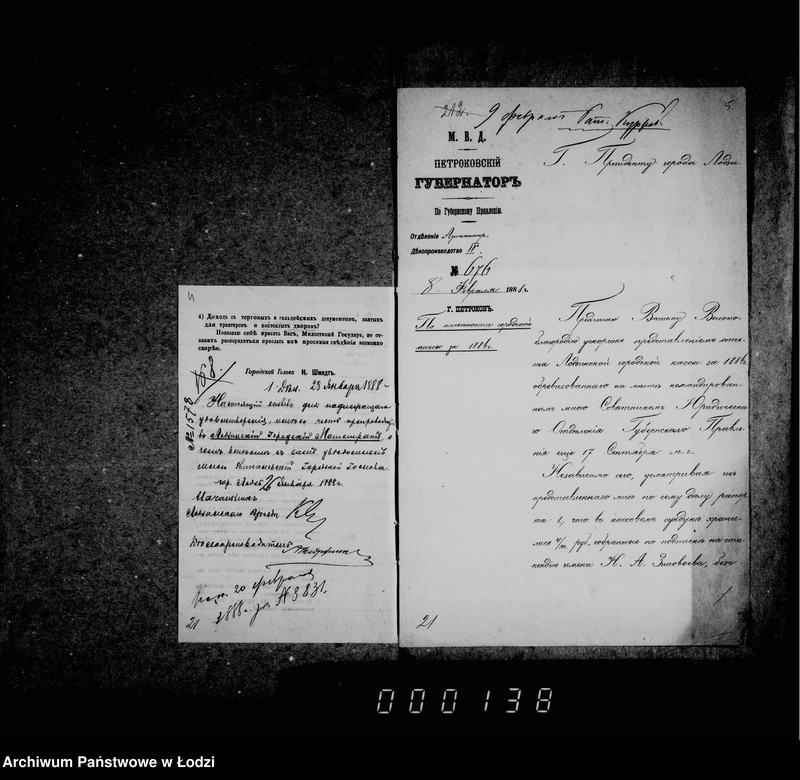 4) Доходъ съ торговыхъ и гильдейскихъ документовъ, взятыхъ
для трактеровъ и постоялыхъ дворовъ?
Позвольте себѣ просить Васъ, Милостивый Государь, не от-
казать распорядиться прислать мнѣ просимыя свѣдѣнія возможно
скорѣе.
Городской Голова Н. Шмидтъ.
1 Дѣл. 23 Января 1888 г.
№ 1578
Настоящій отзывъ для надлежащаго
удовлетворенія, имѣю честь препроводить
въ Лодзинскій Городской Магистратъ, о
чемъ
гор. Лодзь 26 Января 1888 г.
Начальникъ
Лодзинскаго Уѣзда
Дѣлопроизводитель
20 февраля
1888 г. за № 3831.
21
212. 9 февраля
5.
М. В. Д.
ПЕТРОКОВСКІЙ
ГУБЕРНАТОРЪ
По Губернскому Правленію.
Отдѣленіе
Дѣлопроизводство II
№ 676
8 Февраля 1888 г.
Г. ПЕТРОКОВЪ.
По отчетности городской
кассы за 1886 г.
Г. Президенту города Лодзи
Предлагаю Вашему Высоко-
благородію ускорить представленіемъ отче-
та Лодзинской городской кассы за 1886 г.
обревизованнаго на мѣстѣ командирован-
нымъ мною Совѣтникомъ Юридическа-
го Отдѣленія Губернскаго Правле-
нія еще 17 Сентября м. г.
Независимо сего, усматривая изъ
представленнаго мнѣ по сему дѣлу рапор-
та: 1, что въ кассовомъ сундукѣ храни-
лись 4/т. руб. собранные по подпискѣ на сти-
пендію имени Н. А. Зиновьева, безъ
21
000138
Archiwum Państwowe w Łodzi